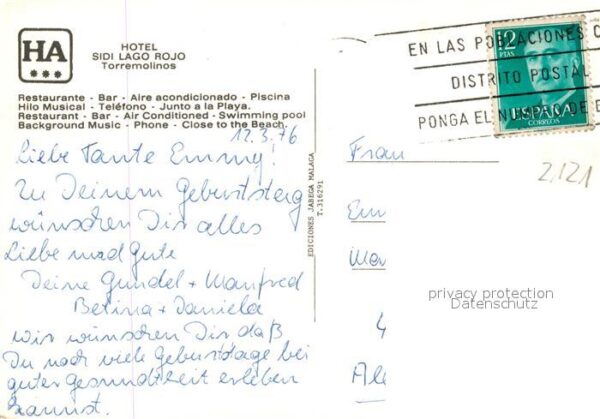 HA
HOTEL
SIDI LAGO ROJO
Torremolinos
Restaurante - Bar - Aire acondicionado - Piscina
Hilo Musical - Teléfono - Junto a la Playa.
Restaurant - Bar - Air Conditioned - Swimming pool
Background Music - Phone - Close to the Beach.
12.3.76
Liebe Tante Emmy!
Zu Deinem Geburtstag
wünschen Dir alles
Liebe und Gute
Deine Gundel + Manfred
Betina + Daniela
wir wünschen Dir daß
Du noch viele Geburtstage bei
guter Gesundheit erleben
kannst.
EDICIONES JABEGA MALAGA
T.316291
EN LAS POBLACIONES C
DISTRITO POSTAL
PONGA EL NUMERO DE E
12
PTAS
ESPAÑA
CORREOS
2121
Frau
Em
Mar
4
Ale
privacy protection
Datenschutz